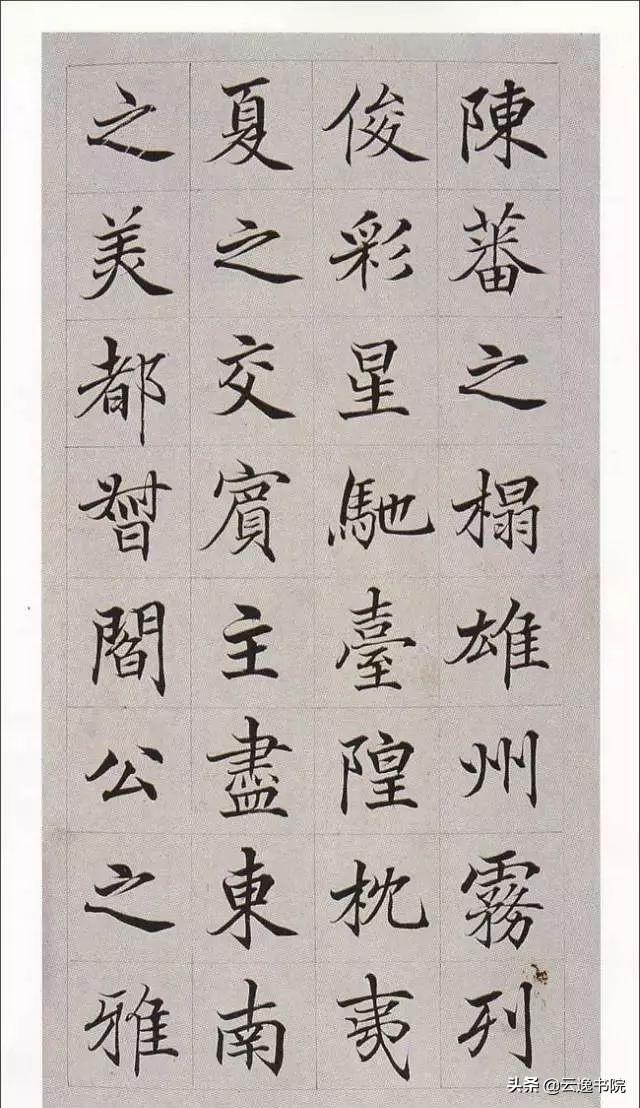 陳蕃之榻雄州霧列
俊彩星馳臺隍枕夷
夏之交賓主盡東南
之美都督閻公之雅
头条@云逸书院